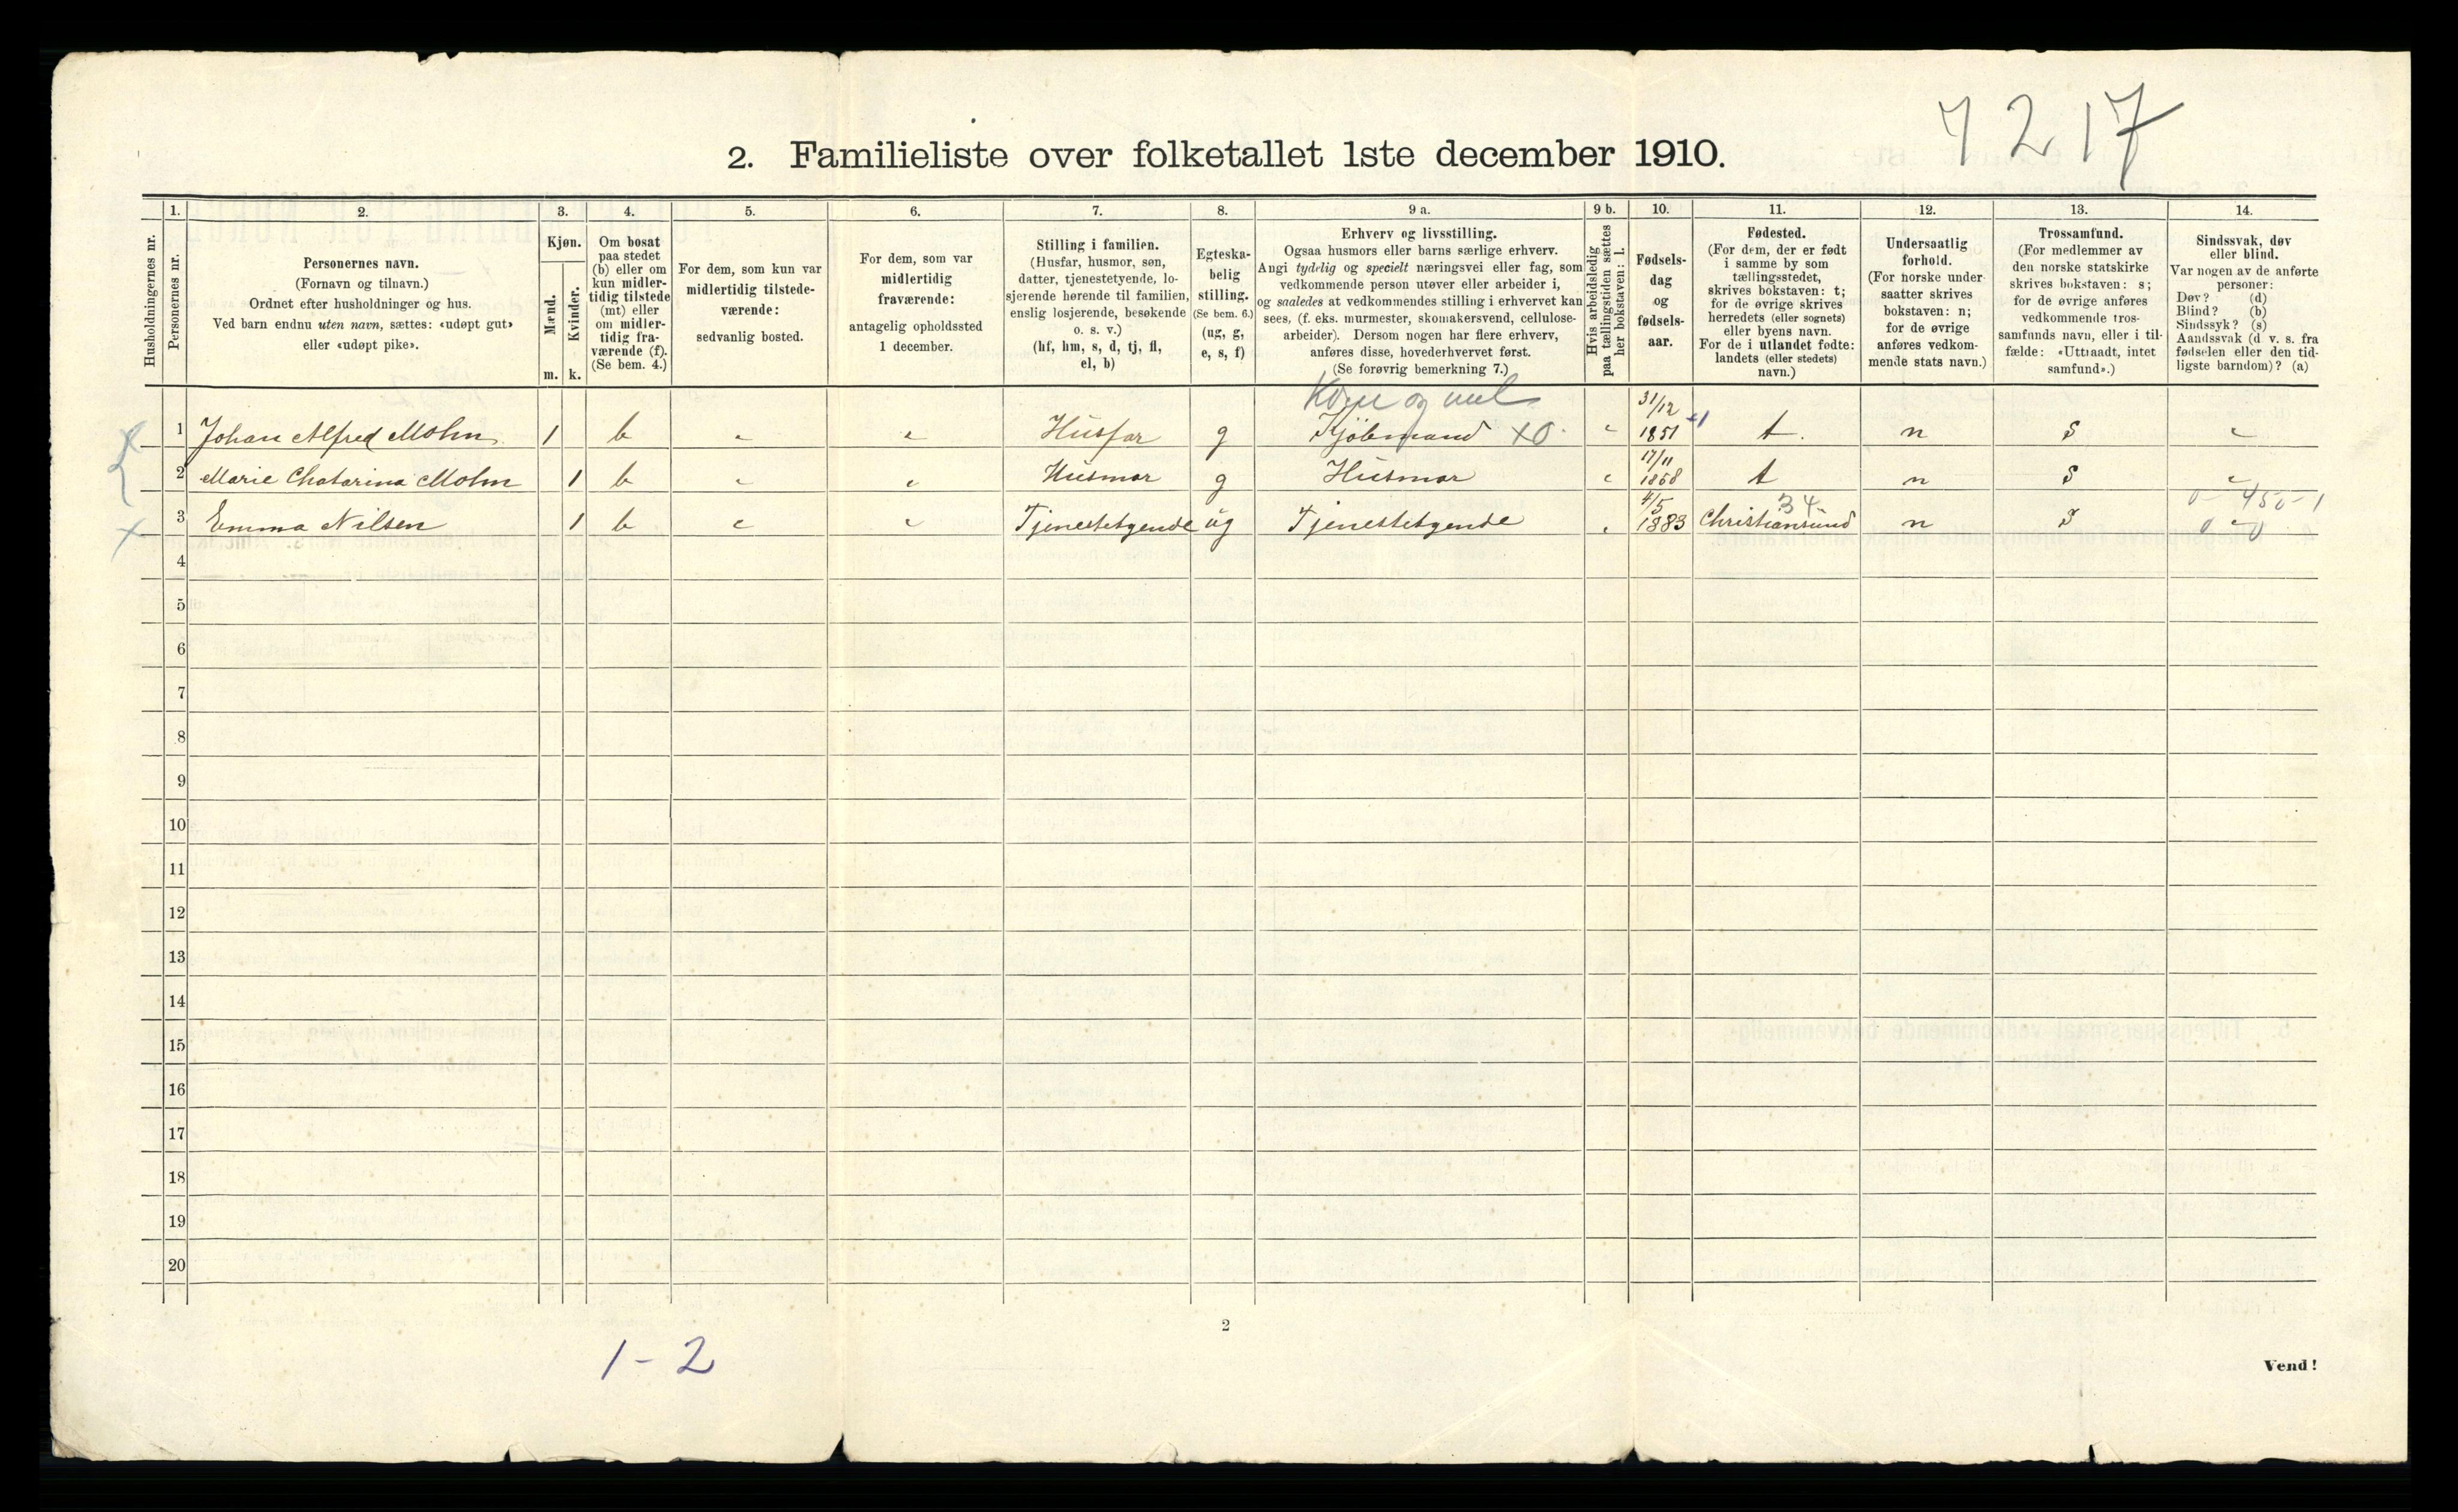 7217
2. Familieliste over folketallet 1ste december 1910.
1. 2. 3. 4. 5. 6. 7. 8. 9 a. 9 b. 10. 11. 12. 13. 14.
Husholdningernes nr.
Personernes nr.
Personernes navn.
(Fornavn og tilnavn.)
Ordnet efter husholdninger og hus.
Ved barn endnu uten navn, sættes: «udøpt gut»
eller «udøpt pike».
Kjøn.
Mænd.
Kvinder.
m. k.
Om bosat
paa stedet
(b) eller om
kun midler-
tidig tilstede
(mt) eller
om midler-
tidig fra-
værende (f).
(Se bem. 4.)
For dem, som kun var
midlertidig tilstede-
værende:
sedvanlig bosted.
For dem, som var
midlertidig
fraværende:
antagelig opholdssted
1 december.
Stilling i familien.
(Husfar, husmor, søn,
datter, tjenestetyende, lo-
sjerende hørende til familien,
enslig losjerende, besøkende
o. s. v.)
(hf, hm, s, d, tj, fl,
el, b)
Egteska-
belig
stilling.
(Se bem. 6.)
(ug, g,
e, s, f)
Erhverv og livsstilling.
Ogsaa husmors eller barns særlige erhverv.
Angi tydelig og specielt næringsvei eller fag, som
vedkommende person utøver eller arbeider i,
og saaledes at vedkommendes stilling i erhvervet kan
sees, (f. eks. murmester, skomakersvend, cellulose-
arbeider). Dersom nogen har flere erhverv,
anføres disse, hovederhvervet først.
(Se forøvrig bemerkning 7.)
Hvis arbeidsledig
paa tællingstiden sættes
her bokstaven: l.
Fødsels-
dag
og
fødsels-
aar.
Fødested.
(For dem, der er født
i samme by som
tællingsstedet,
skrives bokstaven: t;
for de øvrige skrives
herredets (eller sognets)
eller byens navn.
For de i utlandet fødte:
landets (eller stedets)
navn.)
Undersaatlig
forhold.
(For norske under-
saatter skrives
bokstaven: n;
for de øvrige
anføres vedkom-
mende stats navn.)
Trossamfund.
(For medlemmer av
den norske statskirke
skrives bokstaven: s;
for de øvrige anføres
vedkommende tros-
samfunds navn, eller i til-
fælde: «Uttraadt, intet
samfund».)
Sindssvak, døv
eller blind.
Var nogen av de anførte
personer:
Døv? (d)
Blind? (b)
Sindssyk? (s)
Aandssvak (d. v. s. fra
fødselen eller den tid-
ligste barndom)? (a)
og mel
31/12
1 Johan Alfred Mohn 1 b Husfar g Kjøbmand XO 1851 t. n S
17/11
2 Marie Chatarina Mohn 1 b Husmor g Husmor 1868 t n S
4/5 34 0-450-1
3 Emma Nilsen 1 b Tjenestetyende ug Tjenestetyende 1883 Christiansund n S 0 0
4
5
6
7
8
9
10
11
12
13
14
15
16
17
18
19
20
2
1-2
Vend!